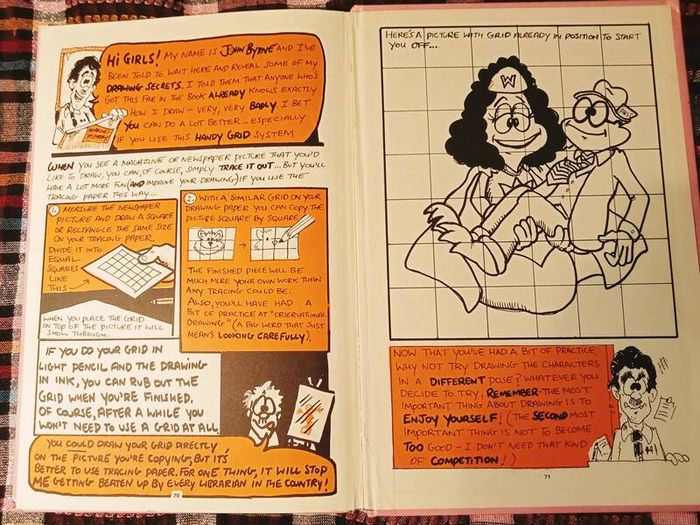 HI GIRLS! MY NAME IS JOHN BYRNE AND I'VE
BEEN TOLD TO WAIT HERE AND REVEAL SOME OF MY
DRAWING SECRETS. I TOLD THEM THAT ANYONE WHO'S
GOT THIS FAR IN THE BOOK ALREADY KNOWS EXACTLY
HOW I DRAW - VERY, VERY BADLY. I BET
YOU CAN DO A LOT BETTER - ESPECIALLY
IF YOU USE THIS HANDY GRID SYSTEM
WHEN YOU SEE A MAGAZINE OR NEWSPAPER PICTURE THAT YOU'D
LIKE TO DRAW, YOU CAN, OF COURSE, SIMPLY TRACE IT OUT... BUT YOU'LL
HAVE A LOT MORE FUN (AND IMPROVE YOUR DRAWING) IF YOU USE THE
TRACING PAPER THIS WAY...
1. MEASURE THE NEWSPAPER
PICTURE AND DRAW A SQUARE
OR RECTANGLE THE SAME SIZE
ON YOUR TRACING PAPER.
DIVIDE IT INTO
EQUAL
SQUARES
LIKE
THIS
WHEN YOU PLACE THE GRID
ON TOP OF THE PICTURE IT WILL
SHOW THROUGH.
2. WITH A SIMILAR GRID ON YOUR
DRAWING PAPER YOU CAN COPY THE
PICTURE SQUARE BY SQUARE
THE FINISHED PIECE WILL BE
MUCH MORE YOUR OWN WORK THAN
ANY TRACING COULD BE.
ALSO, YOU'LL HAVE HAD A
BIT OF PRACTICE AT "OBSERVATIONAL
DRAWING" (A BIG WORD THAT JUST
MEANS LOOKING CAREFULLY).
IF YOU DO YOUR GRID IN
LIGHT PENCIL AND THE DRAWING
IN INK, YOU CAN RUB OUT THE
GRID WHEN YOU'RE FINISHED.
OF COURSE, AFTER A WHILE YOU
WON'T NEED TO USE A GRID AT ALL
YOU COULD DRAW YOUR GRID DIRECTLY
ON THE PICTURE YOU'RE COPYING, BUT IT'S
BETTER TO USE TRACING PAPER. FOR ONE THING, IT WILL STOP
ME GETTING BEATEN UP BY EVERY LIBRARIAN IN THE COUNTRY!
70
HERE'S A PICTURE WITH GRID ALREADY IN POSITION TO START
YOU OFF...
W
NOW THAT YOU'VE HAD A BIT OF PRACTICE,
WHY NOT TRY DRAWING THE CHARACTERS
IN A DIFFERENT POSE? WHATEVER YOU
DECIDE TO TRY, REMEMBER - THE MOST
IMPORTANT THING ABOUT DRAWING IS TO
ENJOY YOURSELF! (THE SECOND MOST
IMPORTANT THING IS NOT TO BECOME
TOO GOOD - I DON'T NEED THAT KIND
OF COMPETITION!)
71